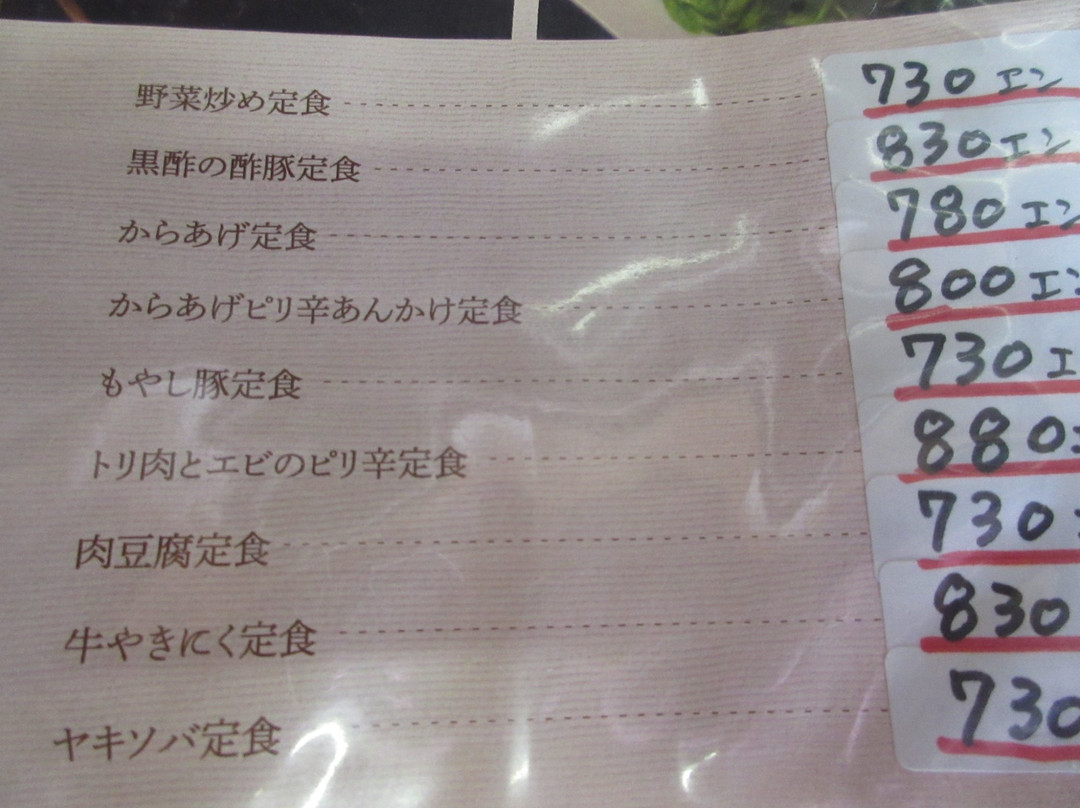 野菜炒め定食 730エン
黒酢の酢豚定食 830エン
からあげ定食 780エン
からあげピリ辛あんかけ定食 800エン
もやし豚定食 730エ
トリ肉とエビのピリ辛定食 880
肉豆腐定食 730
牛やきにく定食 830
ヤキソバ定食 730